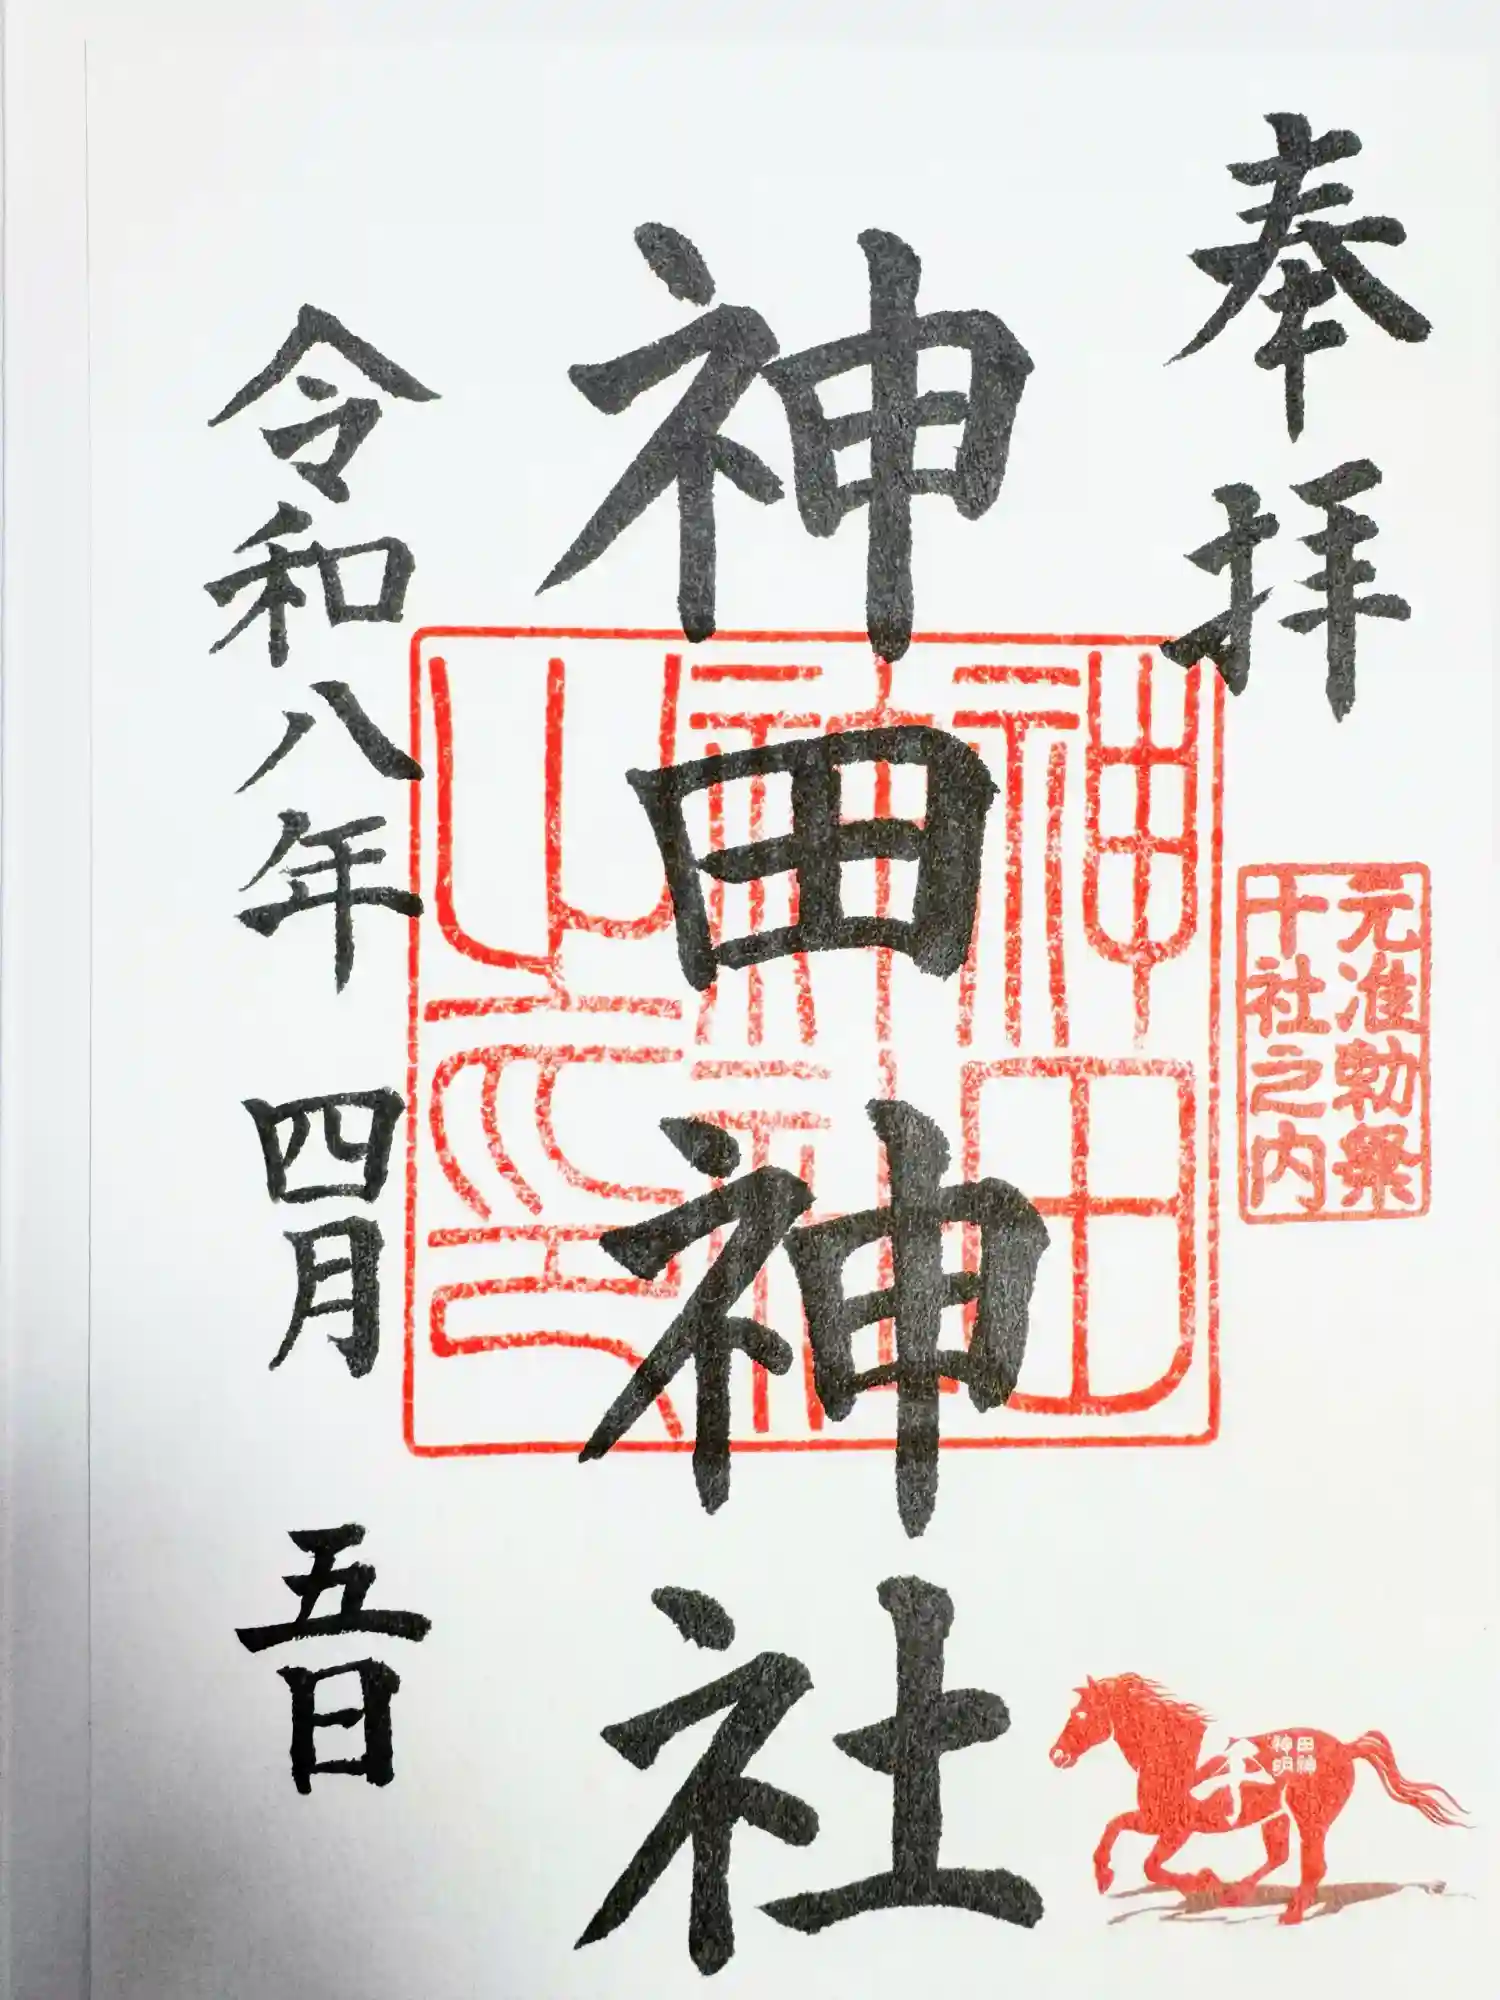 奉拝
元准勅祭
十社之内
神田神社
神田
神社
之印
令和八年 四月 五日
午
神田
明神